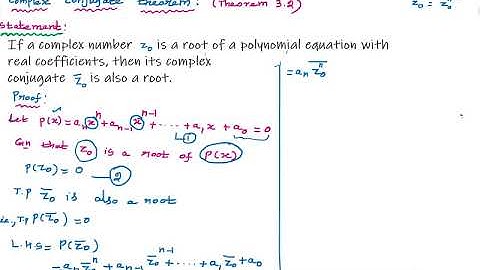 Complex conjugate theorem: (Theorem 3.2)
Statement:
If a complex number z₀ is a root of a polynomial equation with
real coefficients, then its complex
conjugate z̄₀ is also a root.
Proof:
Let P(x) = aₙxⁿ + aₙ₋₁xⁿ⁻¹ + ····· + a₁x + a₀ = 0
①
Gn that z₀ is a root of P(x)
P(z₀) = 0 — ②
T.P z̄₀ is also a root
ie., T.P P(z̄₀) = 0
L.h.s = P(z̄₀)
= aₙz̄₀ⁿ + aₙ₋₁z̄₀ⁿ⁻¹ + ···· + a₁z̄₀ + a₀
= aₙz̄₀ⁿ